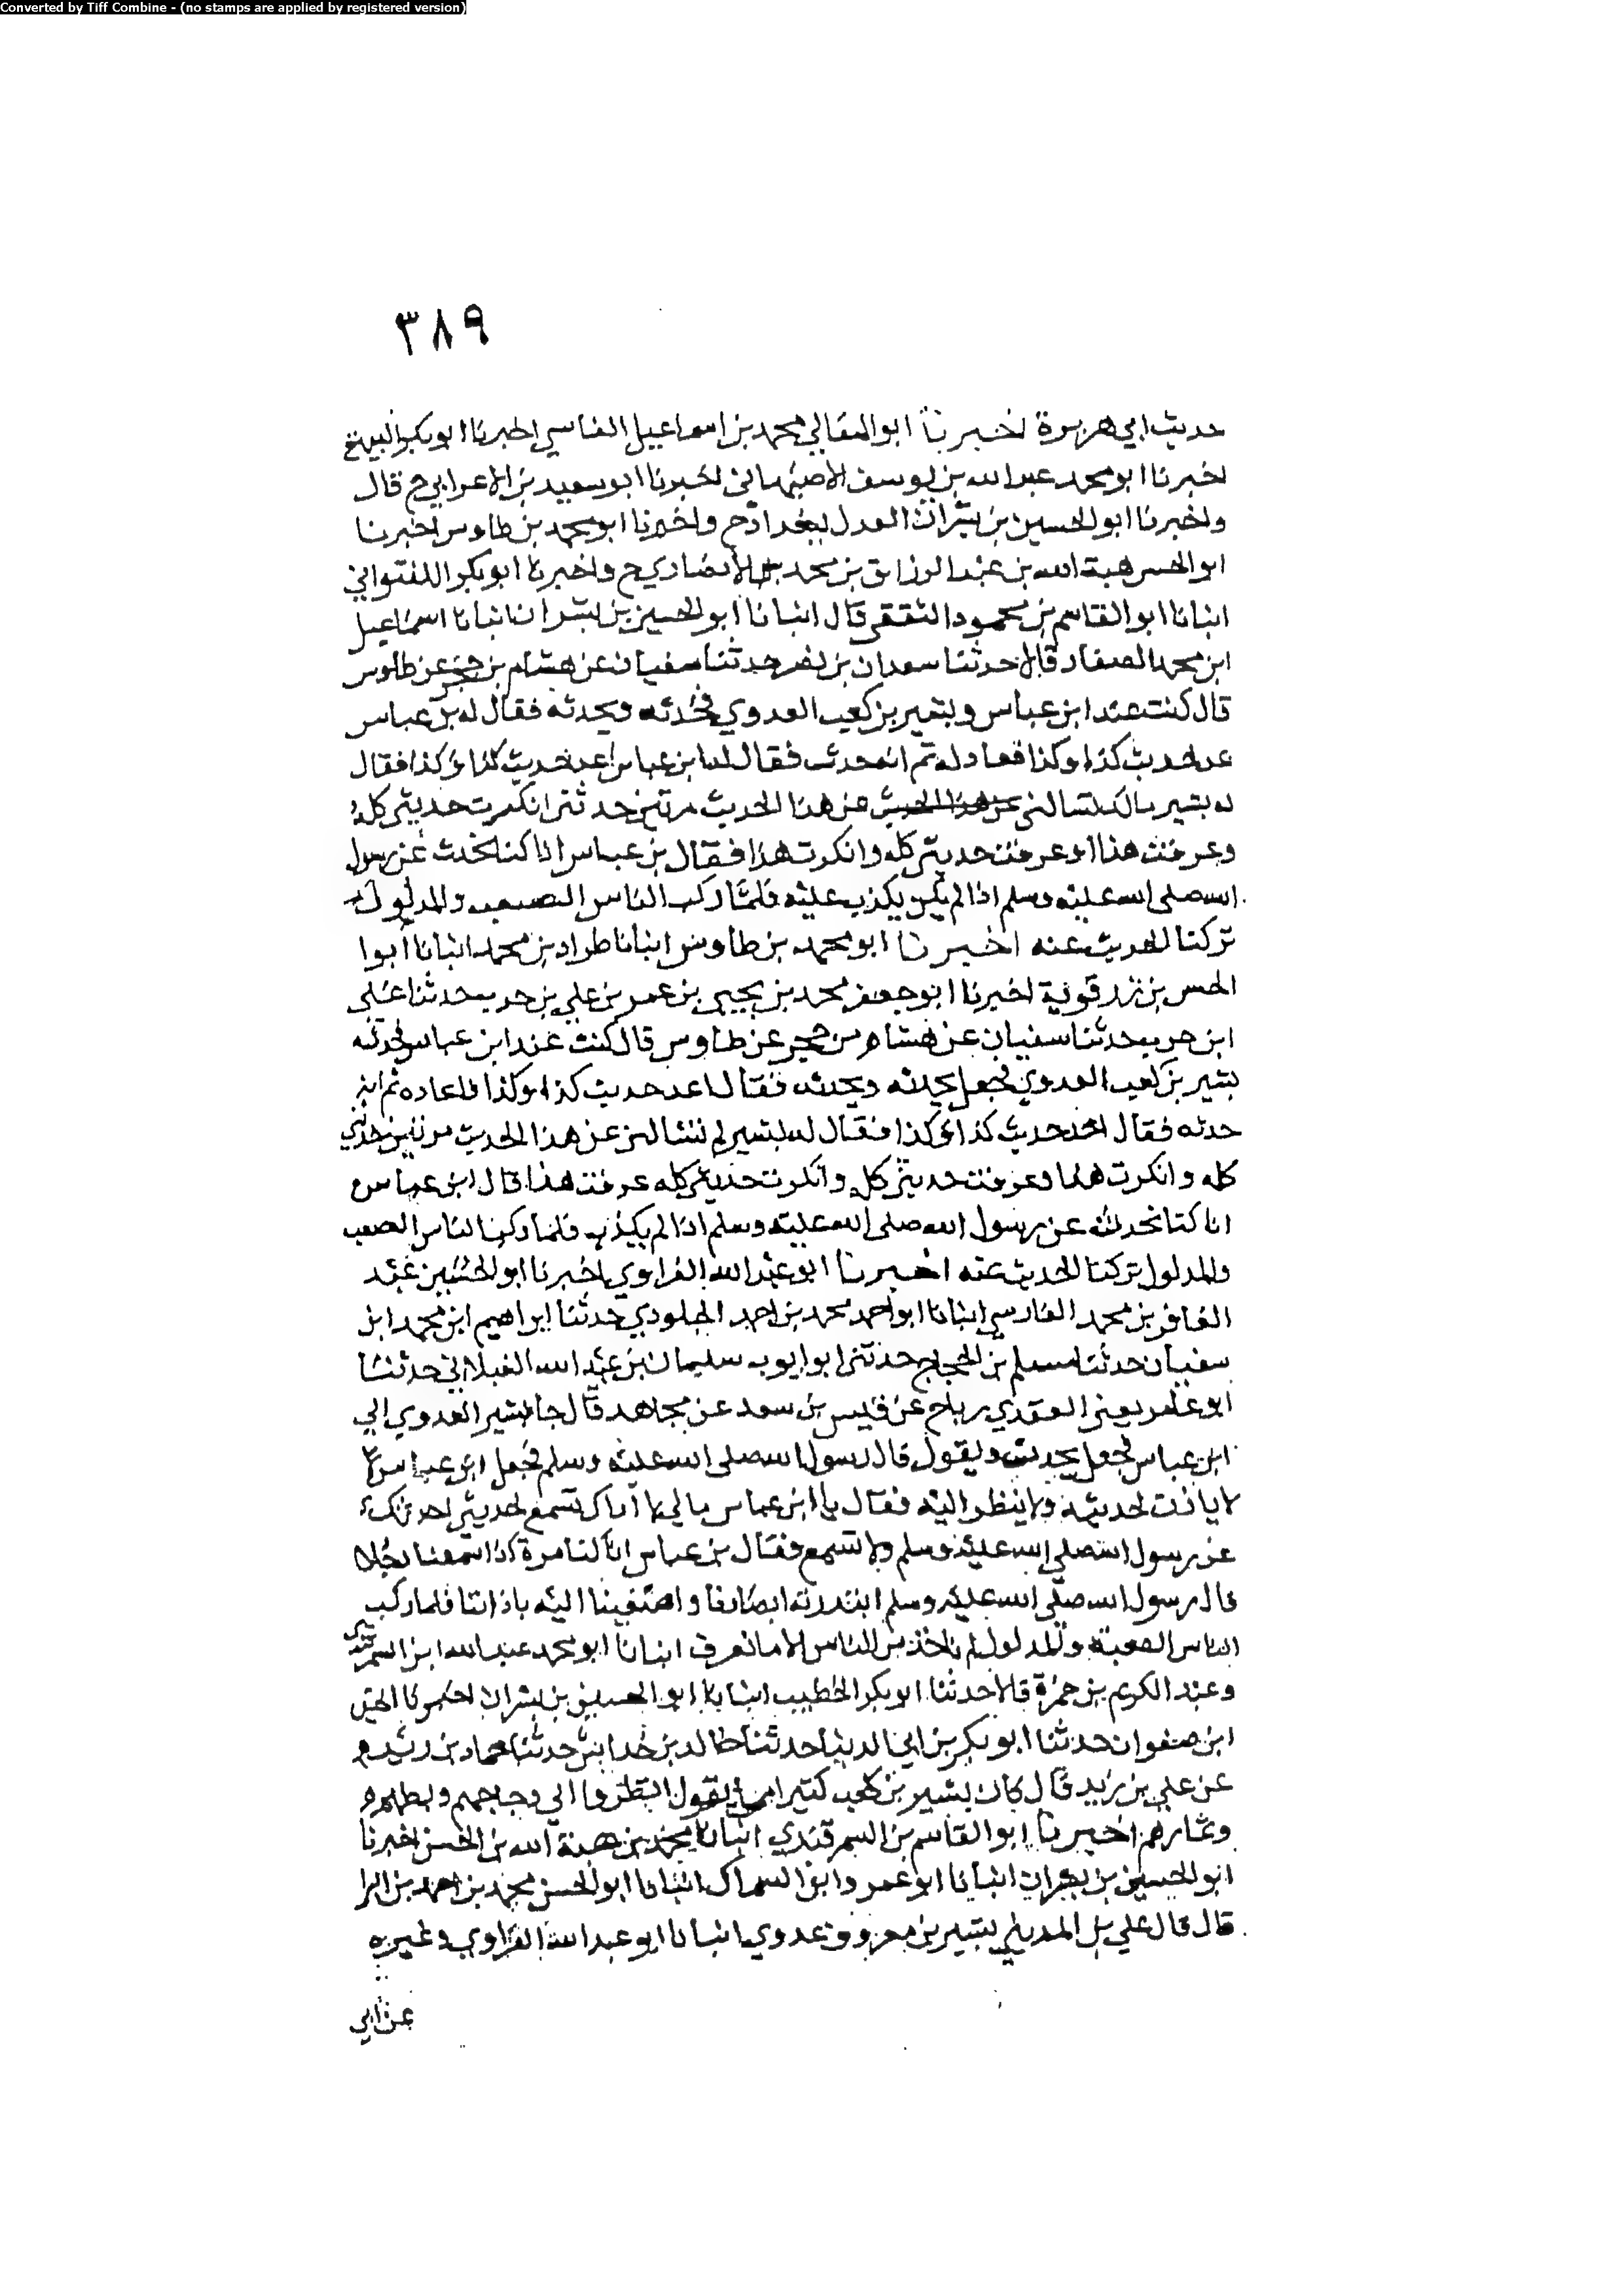 Converted by Tiff Combine - (no stamps are applied by registered version)
٣٨٩
حديث ابي هريرة اخبرنا ابو المعالي محمد بن اسماعيل الفاسي اخبرنا ابو بكر البيهقي
اخبرنا ابو محمد عبد الله بن يوسف الاصبهاني اخبرنا ابو سعيد بن الاعرابي ح قال
واخبرنا ابو الحسين بن بشران العدل ببغداد ح واخبرنا ابو محمد بن طاوس اخبرنا
ابو الحسن هبة الله بن عبد الرزاق بن محمد الانصاري ح واخبرنا ابو بكر اللفتواني
انبانا ابو القاسم بن محمود الثقفي قال انبانا ابو الحسين بن بشران انبانا اسماعيل
ابن محمد الصفار قالا حدثنا سعدان بن نصر حدثنا سفيان عن هشام بن حجر عن طاوس
قال كنت عند ابن عباس وبشير بن كعب العدوي يحدثه ويحدثه فقال له بن عباس
عد لحديث كذا وكذا فعاد له ثم انه حدث فقال له ابن عباس عد لحديث كذا وكذا فقال
له بشير مالك تسالني عن هذا الحديث مرتين حدثتي انكرت حديثي كله
وعرفت هذا او عرفت حديثي كله وانكرت هذا فقال بن عباس انا كنا نحدث عن رسول
الله صلى الله عليه وسلم اذا لم يكن يكذب عليه فلما ركب الناس الصعب والمدلول
تركنا الحديث عنه اخبرنا ابو محمد بن طاوس انبانا طراد بن محمد انبانا ابوا
الحسن بن زرقوية اخبرنا ابو جعفر محمد بن يحيى بن عمر بن علي بن حرب حدثنا علي
ابن حرب حدثنا سفيان عن هشام بن حجير عن طاوس قال كنت عند ابن عباس يحدثه
بشير بن كعب العدوي فجعل يحدثه ويحدثه فقال اعد حديث كذا وكذا فاعاده ثم انه
حدثه فقال اعد حديث كذا وكذا فقال له بشير لم تسالني عن هذا الحديث مرتين حديثي
كله وانكرت هذا وعرفت حديثي كله وانكرت حديثي كله عرفت هذا قال ابن عباس
انا كنا نحدث عن رسول الله صلى الله عليه وسلم اذا لم يكذب فلما ركب الناس الصعب
والمدلول تركنا الحديث عنه اخبرنا ابو عبد الله الفراوي اخبرنا ابو الحسين عبد
الغافر بن محمد الفارسي انبانا ابو احمد محمد بن احمد الجلودي حدثنا ابراهيم ابن محمد ابن
سفيان حدثنا مسلم بن الحجاج حدثني ابو ايوب سليمان بن عبد الله الغيلاني حدثنا
ابو عامر يعني العقدي رباح عن قيس بن سعد عن مجاهد قال جا بشير العدوي الي
ابن عباس فجعل يحدث ويقول قال رسول الله صلى الله عليه وسلم فجعل ابن عباس لا
لا ياذن لحديثه ولا ينظر اليه فقال يا ابن عباس مالي لا اراك تسمع لحديثي احدثك
عن رسول الله صلى الله عليه وسلم ولا تسمع فقال بن عباس انا كنا مرة اذا سمعنا رجلا
قال رسول الله صلى الله عليه وسلم ابتدرته ابصارنا واصغينا اليه باذاننا فلما ركب
الناس الصعبة والمدلول لم ناخذ من الناس الا ما نعرف انبانا ابو محمد عبد الله ابن السمرقندي
وعبد الكريم بن حمزة قالا حدثنا ابو بكر الخطيب انبانا ابو الحسين بن بشران اخبرنا الحسين
ابن صفوان حدثنا ابو بكر بن ابي الدنيا حدثنا خالد بن خداش حدثنا حماد بن
عن علي بن زيد قال كان بشير بن كعب كثيرا يقول انظروا الي دجاجهم وبطهم
وثمارهم اخبرنا ابو القاسم بن السمرقندي انبانا محمد بن هبة الله بن الحسن اخبرنا
ابو الحسين بن بشران انبانا ابو عمرو ابن السماك انبانا ابو الحسن محمد بن احمد بن البرا
قال قال علي بن المديني بشير بن معروف عدوي انبانا ابو عبد الله الفراوي وغيره
عن ابي